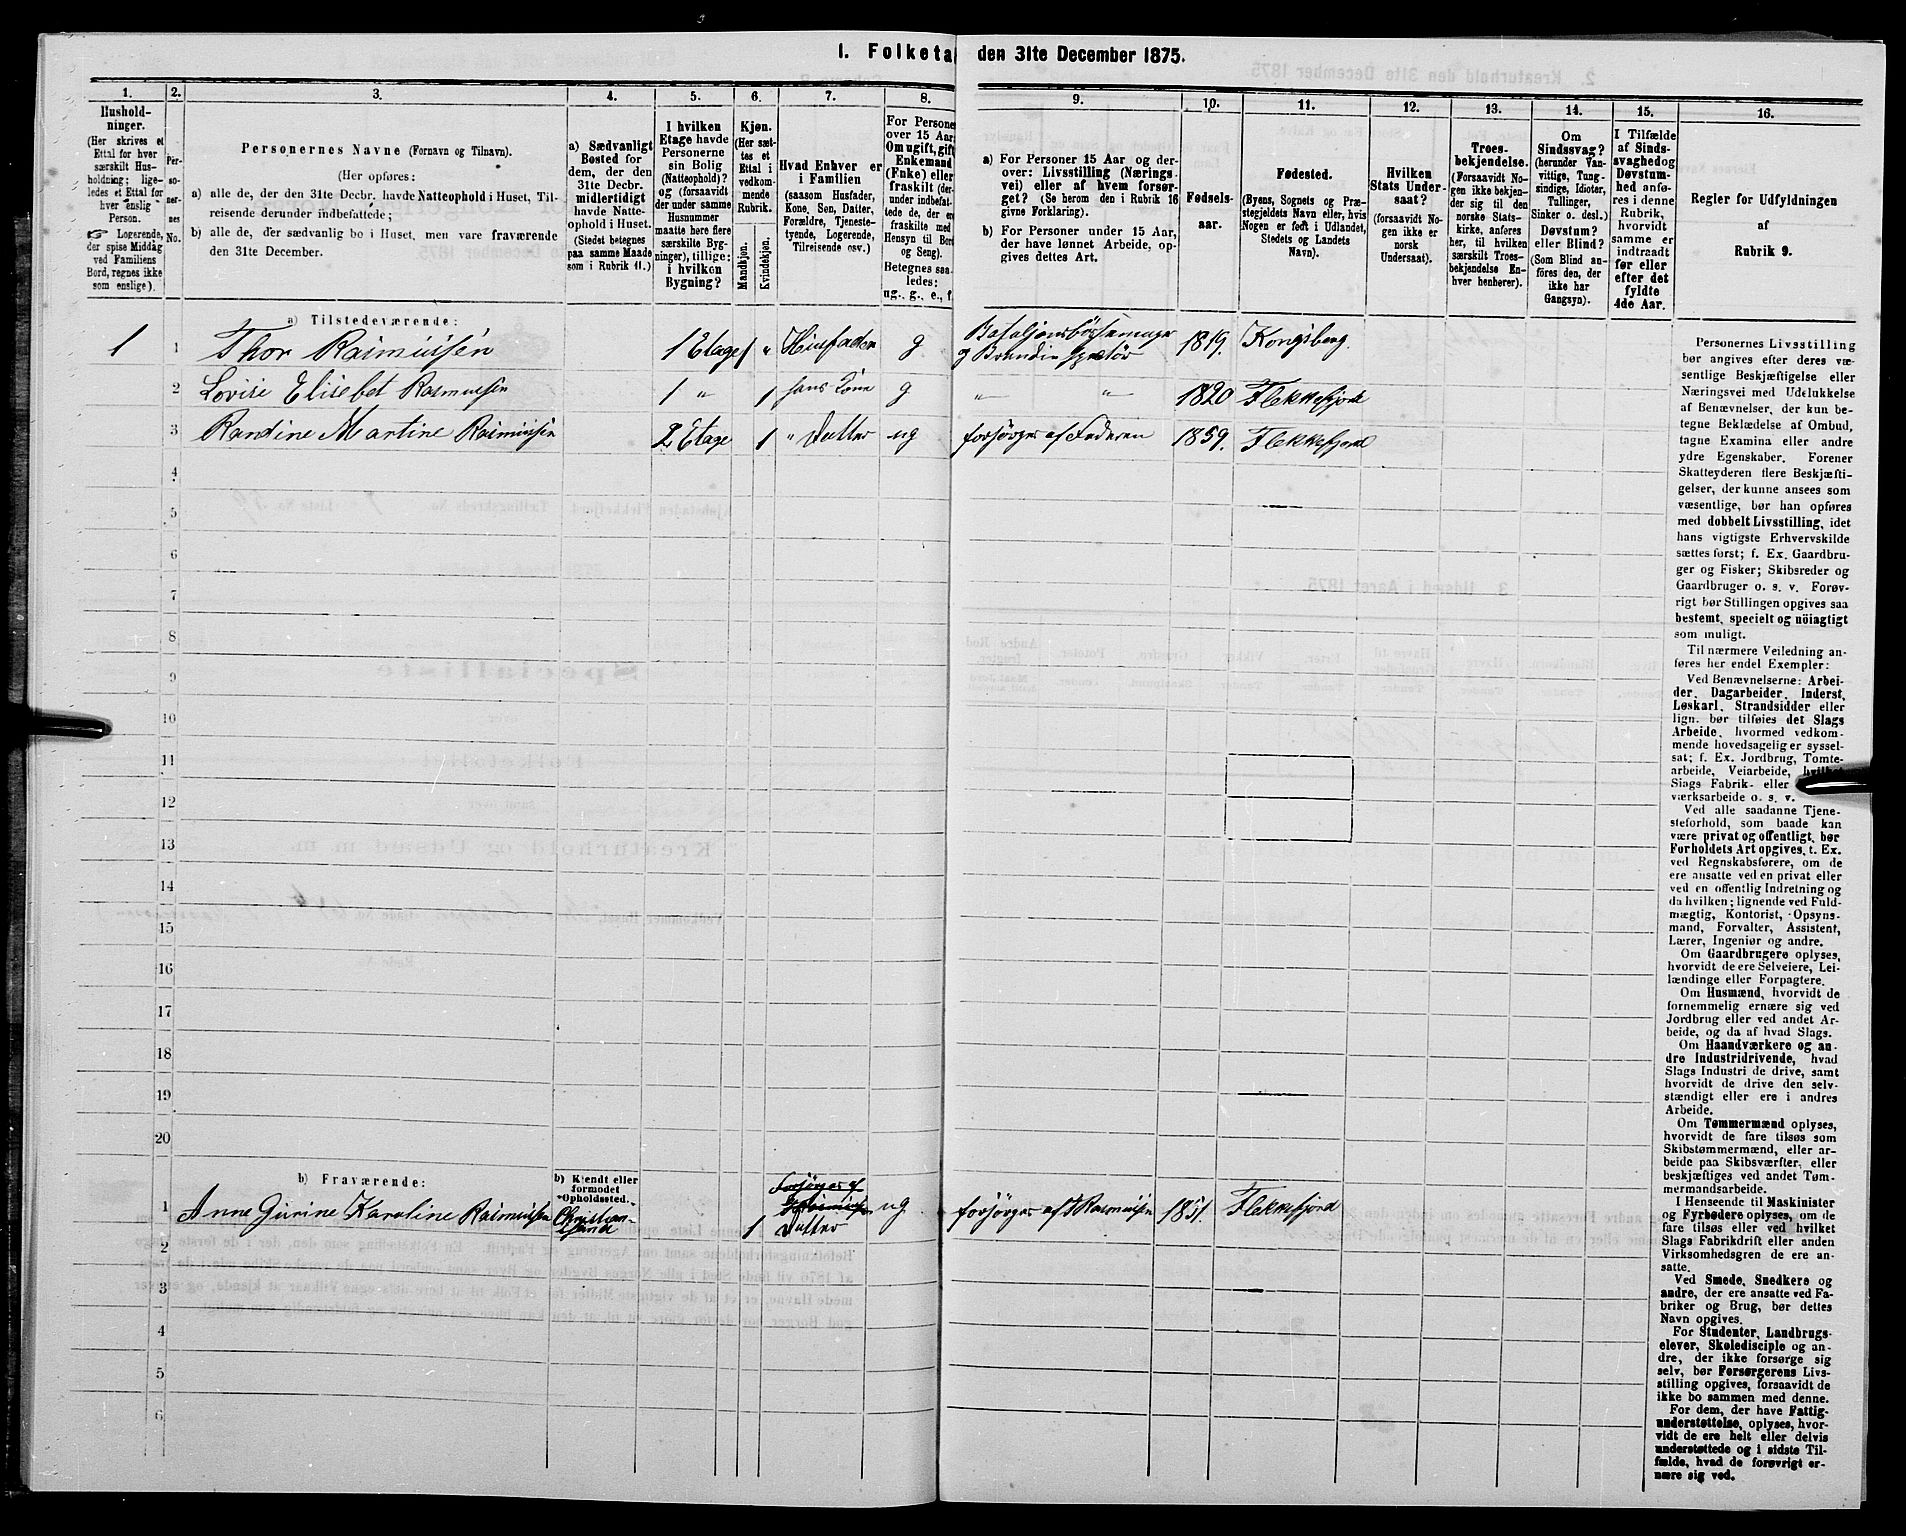 1. Folketa den 31te December 1875.
1. 2. 3. 4. 5. 6. 7. 8. 9. 10. 11. 12. 13. 14. 15. 16.
Hushold-
ninger.
(Her skrives et
Ettal for hver
særskilt Hus-
holdning; lige-
ledes et Ettal for
hver enslig
Person.
☞ Logerende,
der spise Middag
ved Familiens
Bord, regnes ikke
som enslige).
Per-
so-
ner-
nes
No.
Personernes Navne (Fornavn og Tilnavn).
(Her opføres:
a) alle de, der den 31te Decbr. havde Natteophold i Huset, Til-
reisende derunder indbefattede;
b) alle de, der sædvanlig bo i Huset, men vare fraværende
den 31te December.
a) Sædvanligt
Bosted for
dem, der den
31te Decbr.
midlertidigt
havde Natte-
ophold i Huset.
(Stedet betegnes
paa samme Maade
som i Rubrik 11.)
I hvilken
Etage havde
Personerne
sin Bolig
(Natteophold)?
og (forsaavidt
der under samme
Husnummer
maatte høre flere
særskilte Byg-
ninger), tillige:
i hvilken
Bygning?
Kjøn.
(Her sæt-
tes et
Ettal i
vedkom-
mende
Rubrik.
Mandkjøn.
Kvindekjøn.
Hvad Enhver er
i Familien
(saasom Husfader,
Kone, Søn, Datter,
Forældre, Tjeneste-
tyende, Logerende,
Tilreisende osv.)
For Persone
over 15 Aar
Om ugift, gift
Enkemand
(Enke) eller
fraskilt (der-
under indbefat-
tede de, der er
fraskilte med
Hensyn til Bord
og Seng).
Betegnes saa-
ledes:
ug., g., e., f.
a) For Personer 15 Aar og der-
over: Livsstilling (Nærings-
vei) eller af hvem forsør-
get? (Se herom den i Rubrik 16
givne Forklaring).
b) For Personer under 15 Aar,
der have lønnet Arbeide, op-
gives dettes Art.
Fødsels-
aar.
Fødested.
(Byens, Sognets og Præ-
stegjeldets Navn eller, hvis
Nogen er født i Udlandet,
Stedets og Landets
Navn).
Hvilken
Stats Under-
saat?
(forsaavidt No-
gen ikke er
norsk
Undersaat).
Troes-
bekjendelse.
(Forsaavidt No-
gen ikke bekjen-
der sig til den
norske Stats-
kirke, anføres
her, til hvilken
særskilt Troes-
bekjendelse En-
hver henhører).
Om
Sindssvag?
(herunder Van-
vittige, Tung-
sindige, Idioter,
Tullinger,
Sinker o. desl.)
Døvstum?
eller Blind?
(Som Blind an-
føres den, der
ikke har
Gangsyn).
I Tilfælde
af Sinds-
svaghed og
Døvstum-
hed anfø-
res i denne
Rubrik,
hvorvidt
samme er
indtraadt
før eller
efter det
fyldte
4de Aar.
Regler for Udfyldningen
af
Rubrik 9.
a) Tilstedeværende:
1 1 Thor Rasmussen 1 Etage 1 " Husfader g Bataljonsbøssemager og Brandinspektør 1819. Kongsberg.
2 Lovise Elisebet Rasmussen 1 " 1 hans Kone g " " 1820 Flekkefjord
3 Randine Martine Rasmussen 2 Etage 1 " Datter ug forsørges af Faderen 1859. Flekkefjord
4
5
6
7
8
9
10
11
12
13
14
15
16
17
18
19
20
b) Fraværende:
b) Kjendt eller
formodet
Opholdssted.
1 Anne Gurine Karoline Rasmussen Christian-
sand 1 Datter ug forsørges af Rasmussen 1851. Flekkefjord
2
3
4
5
6
Personernes Livsstilling
bør angives efter deres væ-
sentlige Beskjæftigelse eller
Næringsvei med Udelukkelse
af Benævnelser, der kun be-
tegne Beklædelse af Ombud,
tagne Examina eller andre
ydre Egenskaber. Forener
Skatteyderen flere Beskjæfti-
gelser, der kunne ansees som
væsentlige, bør han opføres
med dobbelt Livsstilling, idet
hans vigtigste Erhvervskilde
sættes først; f. Ex. Gaardbru-
ger og Fisker; Skibsreder og
Gaardbruger o. s. v. Forøv-
rigt bør Stillingen opgives saa
bestemt, specielt og nöiagtigt
som muligt.
Til nærmere Veiledning an-
føres her endel Exempler:
Ved Benævnelserne: Arbei-
der, Dagarbeider, Inderst,
Løskarl, Strandsidder eller
lign. bør tilføies det Slags
Arbeide, hvormed vedkom-
mende hovedsagelig er syssel-
sat; f. Ex. Jordbrug, Tomte-
arbeide, Veiarbeide, hvilket
Slags Fabrik- eller
værksarbeide o. s. v.
Ved alle saadanne Tjene-
steforhold, som baade kan
være privat og offentligt, bør
Forholdets Art opgives, t. Ex.
ved Regnskabsførere, om de
ere ansatte ved en privat eller
ved en offentlig Indretning og
da hvilken; lignende ved Fuld-
mægtig, Kontorist, Opsyns-
mand, Forvalter, Assistent,
Lærer, Ingeniør og andre.
Om Gaardbrugere oplyses,
hvorvidt de ere Selveiere, Lei-
lændinge eller Forpagtere.
Om Husmænd, hvorvidt de
fornemmelig ernære sig ved
Jordbrug eller ved andet Ar-
beide, og da af hvad Slags.
Om Haandværkere og an-
dre Industridrivende, hvad
Slags Industri de drive, samt
hvorvidt de drive den selv-
stændigt eller ere i andres
Arbeide.
Om Tømmermænd oplyses,
hvorvidt de fare tilsøs som
Skibstømmermænd, eller ar-
beide paa Skibsværfter, eller
beskjæftiges ved andet Tøm-
mermandsarbeide.
I Henseende til Maskinister
og Fyrbødere oplyses, om de
fare tilsøs eller ved hvilket
Slags Fabrikdrift eller anden
Virksomhedsgren de ere an-
satte.
Ved Smede, Snedkere og
andre, der ere ansatte ved Fa-
briker og Brug, bør dettes
Navn opgives.
For Studenter, Landbrugs-
elever, Skoledisciple og an-
dre, der ikke forsørge sig
selv, bør Forsørgerens Livs-
stilling opgives, forsaavidt de
ikke bo sammen med denne.
For dem, der have Fattig-
understøttelse, oplyses, hvor-
vidt de ere helt eller delvis
understøttede og i sidste Til-
fælde, hvad de forøvrigt er-
nære sig ved.